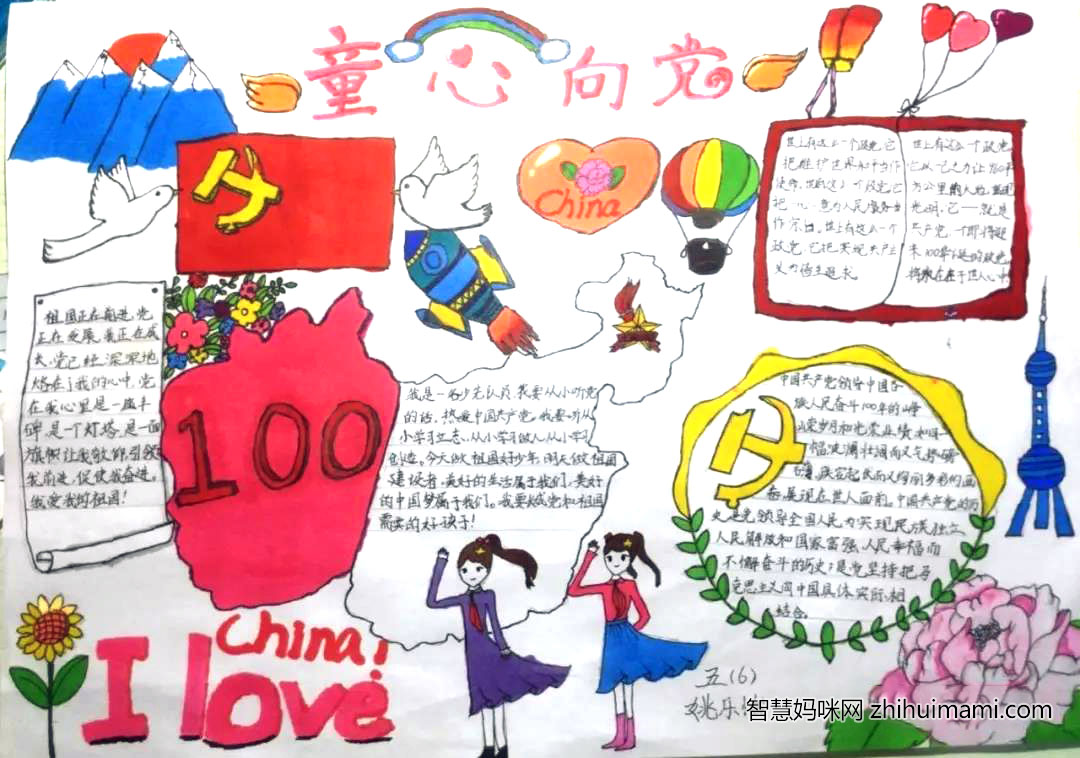 童心向党
China
100
世上有这么一个政党，它
把维护世界和平为作
使命，世上有这么一个政党，它
把一心一意为人民服务当
作宗旨。世上有这么一个
政党，它把实现共产主
义为
世上有这么一个政党
它以一己之力让
万公里的人
光明，它——就是
共产党，一个即将迎
来100年华诞的政党
将永在在于世人心中
祖国正在前进，党
正在发展，我正在成
长，党已经深深地
烙在了我的心中，党
在我心里是一座丰
碑，是一个灯塔，是一面
旗帜让我敬仰引领
我前进，促使我奋进。
我爱我的祖国！
我是一名少先队员，我要从小听党
的话，热爱中国共产党，我要从
小学习立志、从小学习做人、从小学习
创造。今天做祖国好少年，明天做祖国
建设者，美好的生活属于我们，美好
的中国梦属于我们。我要做成党和祖国
需要的好孩子！
中国共产党领导中国各
族人民奋斗100年的峥
嵘岁月和光荣业绩如同一
幅波澜壮阔而又气势磅
礴、跌宕起伏而又绚丽多彩的画
卷，展现在世人面前。中国共产党的历
史是党领导全国人民为实现民族独立
人民解放和国家富强、人民幸福而
不懈奋斗的历史；是党坚持把马
克思主义同中国具体实际相
结合。
China!
I love
五(6)
姚乐
智慧妈咪网 zhihuimami.com